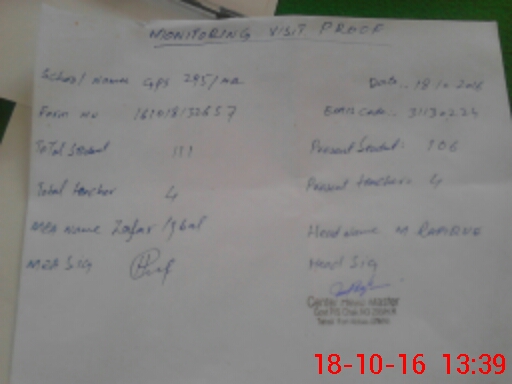 MONITORING VISIT PROOF
School name GPS 295/
Date. 18 10 2016
Form no 161018132657
EMIS Code. 31130224
Total Student 111
Present Student: 106
Total teacher 4
Present teacher. 4
MEA Name Zafar Iqbal
Head Name M
MEA SIG
Head SIG
Center Head Master
18-10-16 13:39